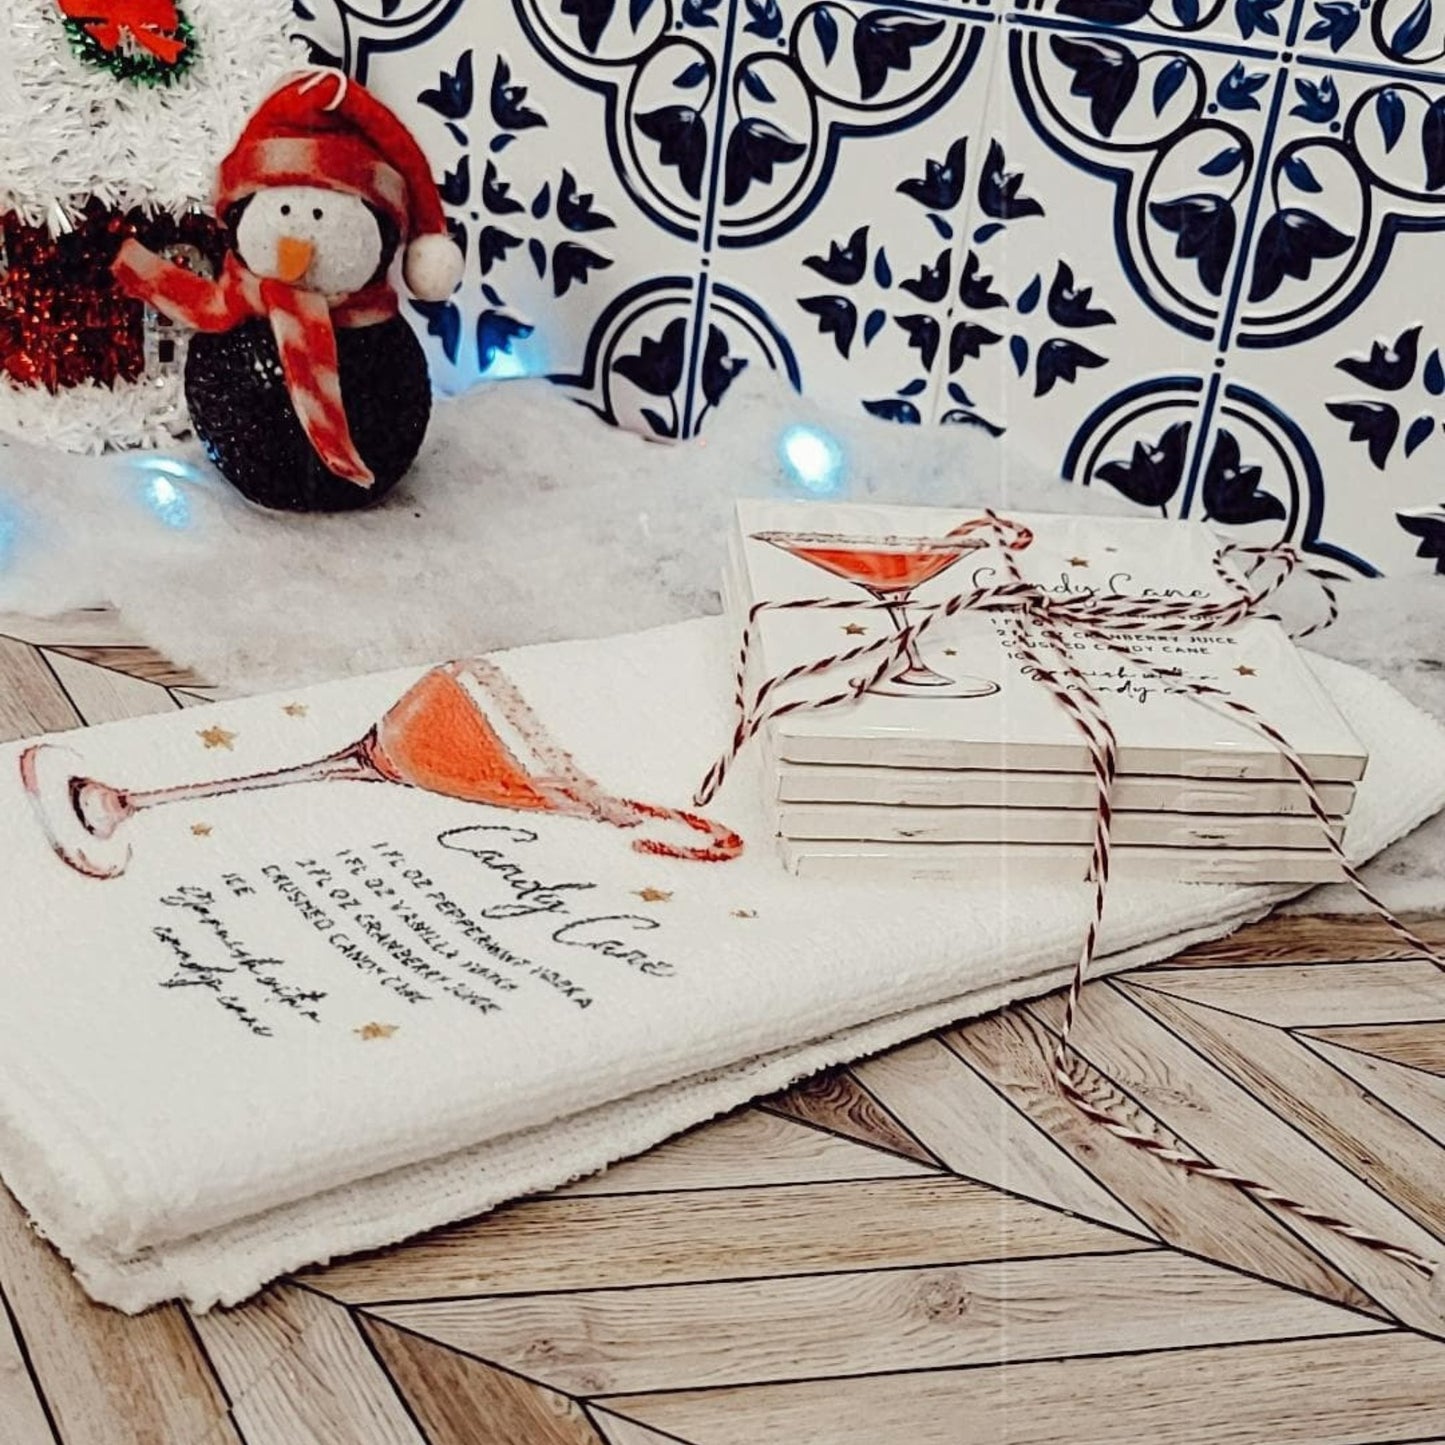 Candy Cane
1 FL OZ PEPPERMINT VODKA
1 FL OZ VANILLA VODKA
2 FL OZ CRANBERRY JUICE
CRUSHED CANDY CANE
ICE
Garnish with a
candy cane
Candy Cane
1 FL O
2 FL OZ CRANBERRY JUICE
CRUSHED CANDY CANE
IC
Garnish with a
candy cane